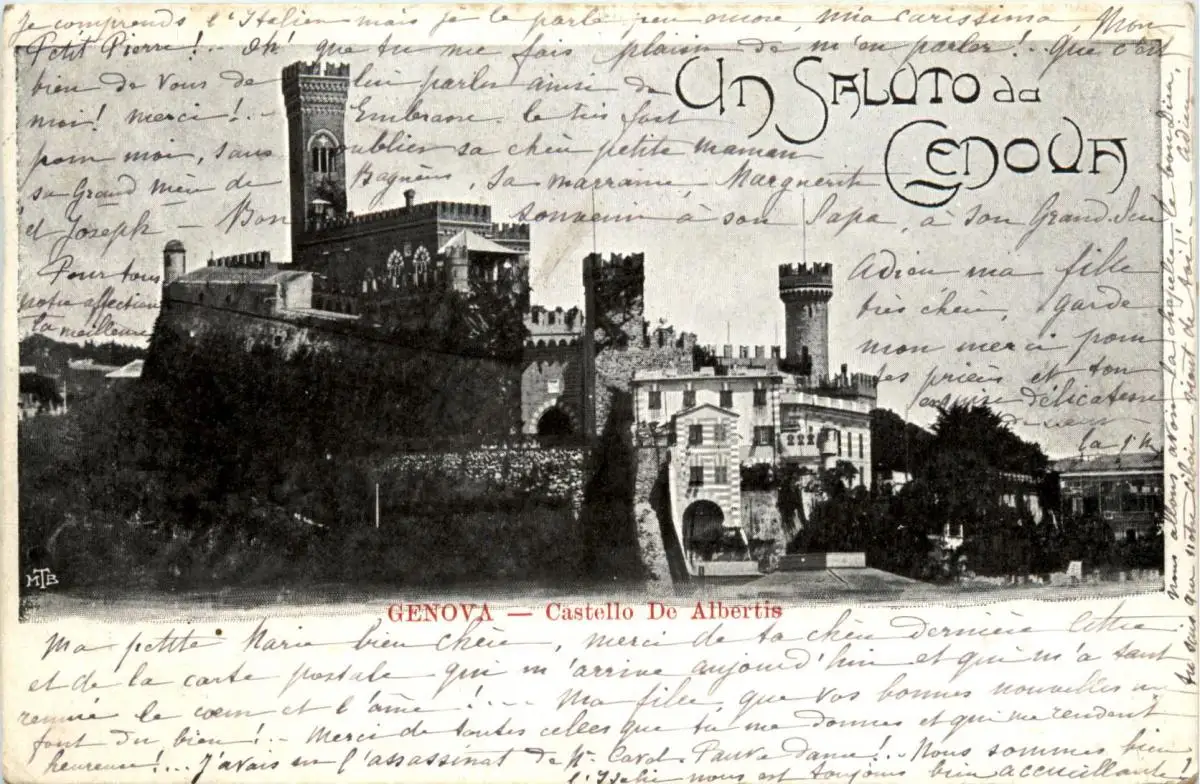 Je comprends l'Italien mais je le parle peu encore, mia carissima, Mon
Petit Pierre! - Oh! que tu me fais plaisir de m'en parler! - que c'est
bien de vous de lui parler ainsi de
moi! merci! - Embrasse-le très fort
pour moi, sans oublier sa chère petite maman
sa Grand mère de Bagnères, Sa marraine Marguerite
et Joseph - Bon souvenir à son Papa, à son Grand
Pour tous
notre affection
la meilleure
Un Saluto da
Genova
Adieu ma fille
très chère, garde
mon merci pour
tes prières et ton
exquise délicatesse
de
MTB
GENOVA — Castello De Albertis
Ma petite Marie bien chère, merci de ta chère dernière lettre
et de la carte postale qui m'arrive aujourd'hui et qui m'a tant
remué le cœur et l'âme! - Ma fille, que vos bonnes nouvelles me
font du bien! - Merci de toutes celles que tu me donnes et qui me rendent
heureuse! - J'avais su l'assassinat de Pauvre dame! - Nous sommes bien
nous est toujours bien accueillante!
nous allons avoir la chapelle, le bon dieu,
Adieu.